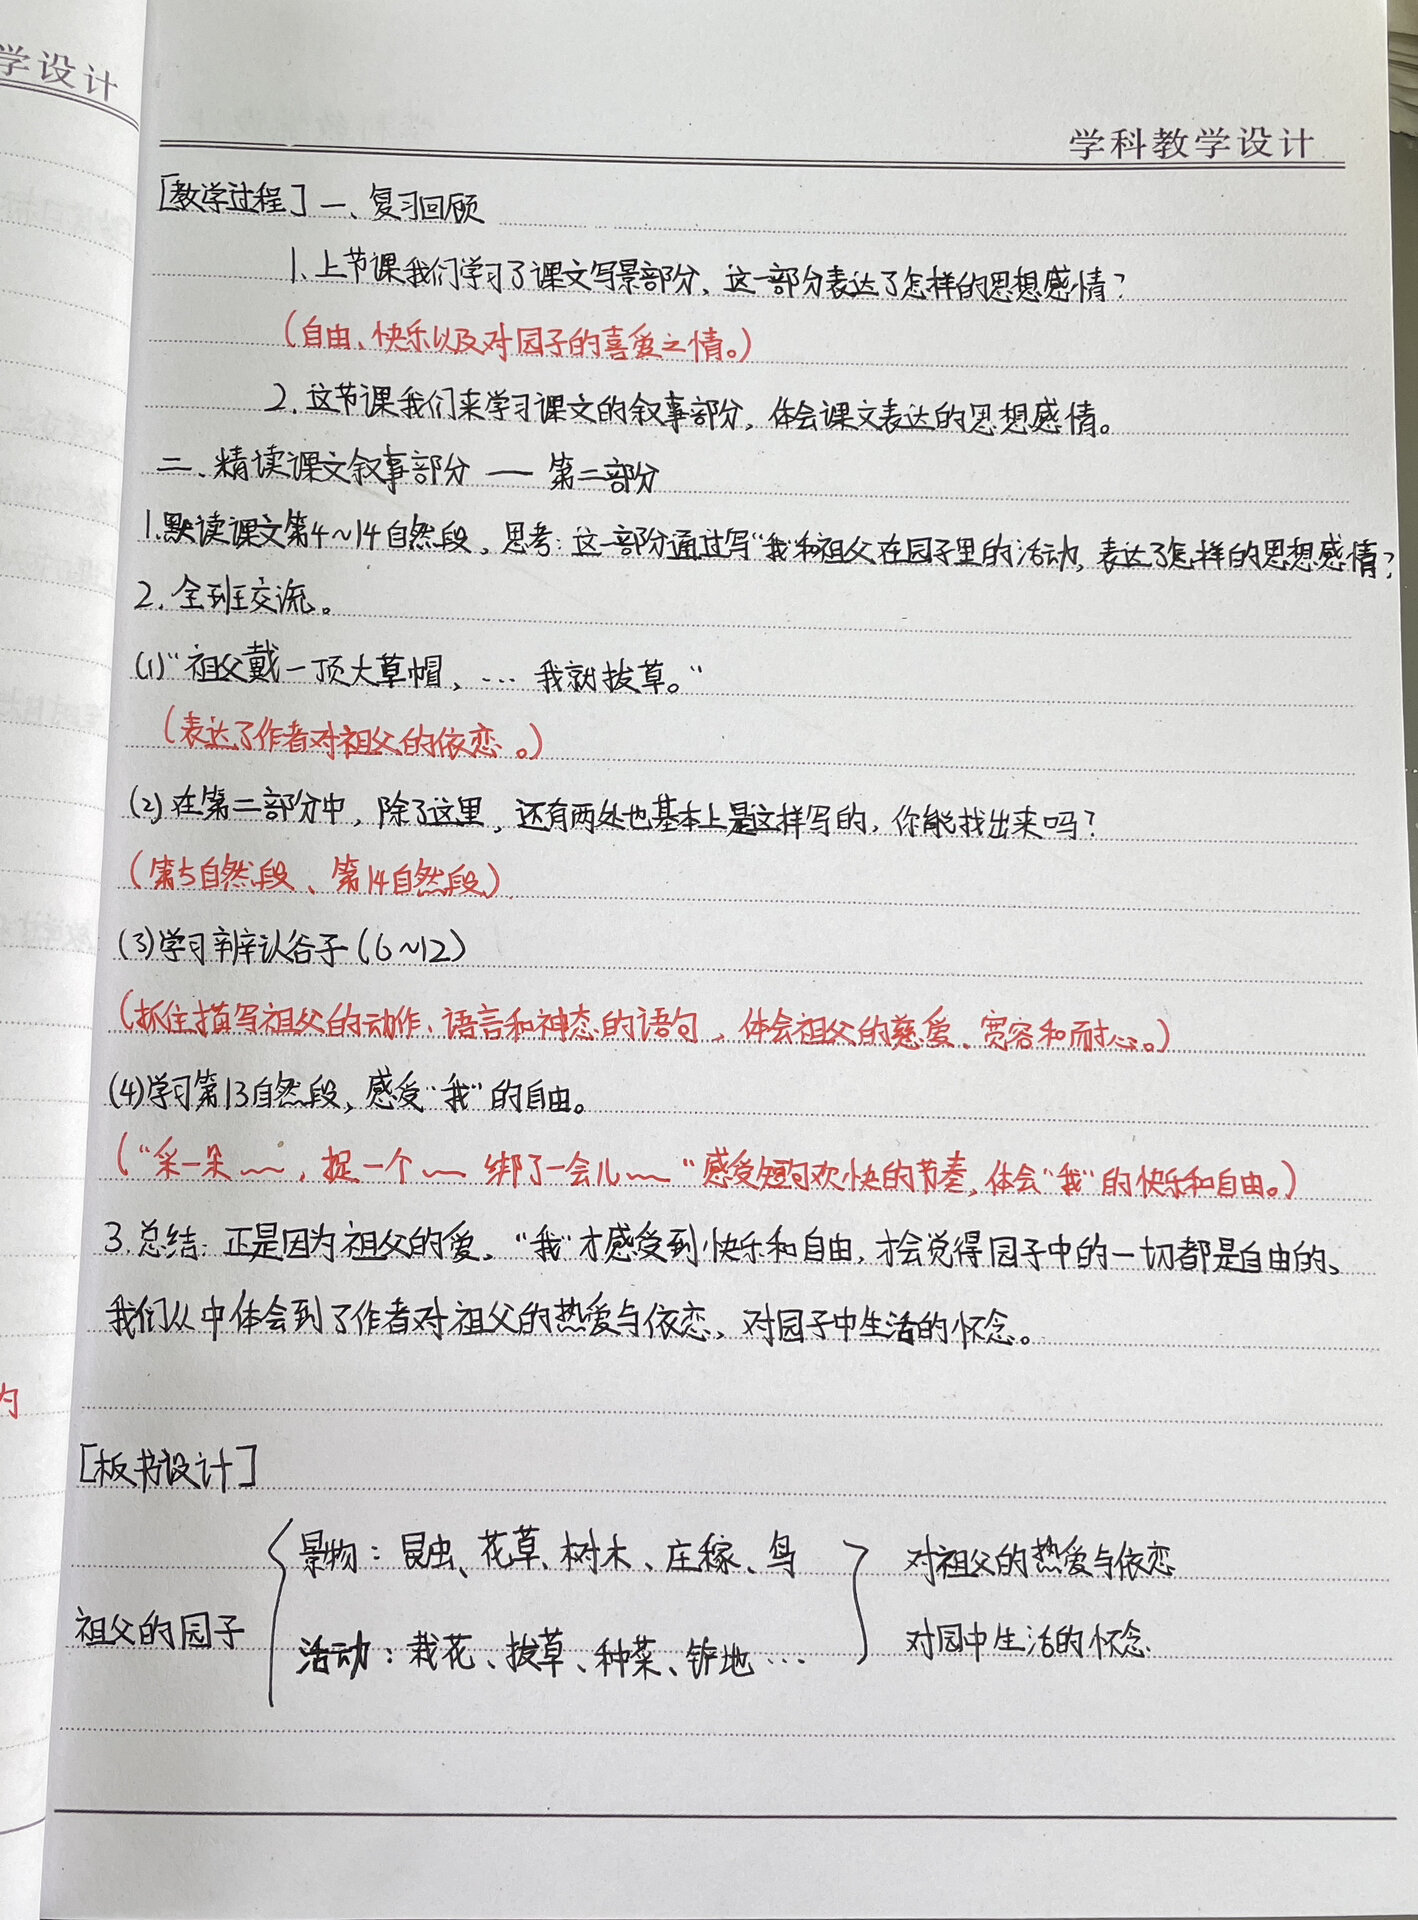 学设计
学科教学设计
[教学过程] 一、复习回顾
1、上节课我们学习了课文写景部分，这一部分表达了怎样的思想感情？
（自由、快乐以及对园子的喜爱之情。）
2、这节课我们来学习课文的叙事部分，体会课文表达的思想感情。
二、精读课文叙事部分 — 第二部分
1.默读课文第4~14自然段，思考：这一部分通过写“我”和祖父在园子里的活动，表达了怎样的思想感情？
2、全班交流。
(1)“祖父戴一顶大草帽，… 我就拔草。”
（表达了作者对祖父的依恋。）
(2) 在第二部分中，除了这里，还有两处也基本上是这样写的，你能找出来吗？
（第5自然段、第14自然段）
(3)学习辨认谷子（6~12）
（抓住描写祖父的动作、语言和神态的语句，体会祖父的慈爱、宽容和耐心。）
(4)学习第13自然段，感受“我”的自由。
（“采一朵~~，捉一个~~ 绑了一会儿~~”感受短句欢快的节奏，体会“我”的快乐和自由。）
3、总结：正是因为祖父的爱，“我”才感受到快乐和自由，才会觉得园子中的一切都是自由的、
我们从中体会到了作者对祖父的热爱与依恋，对园子中生活的怀念。
内
[板书设计]
景物：昆虫、花草、树木、庄稼、鸟
对祖父的热爱与依恋
祖父的园子
活动：栽花、拔草、种菜、铲地…
对园中生活的怀念.